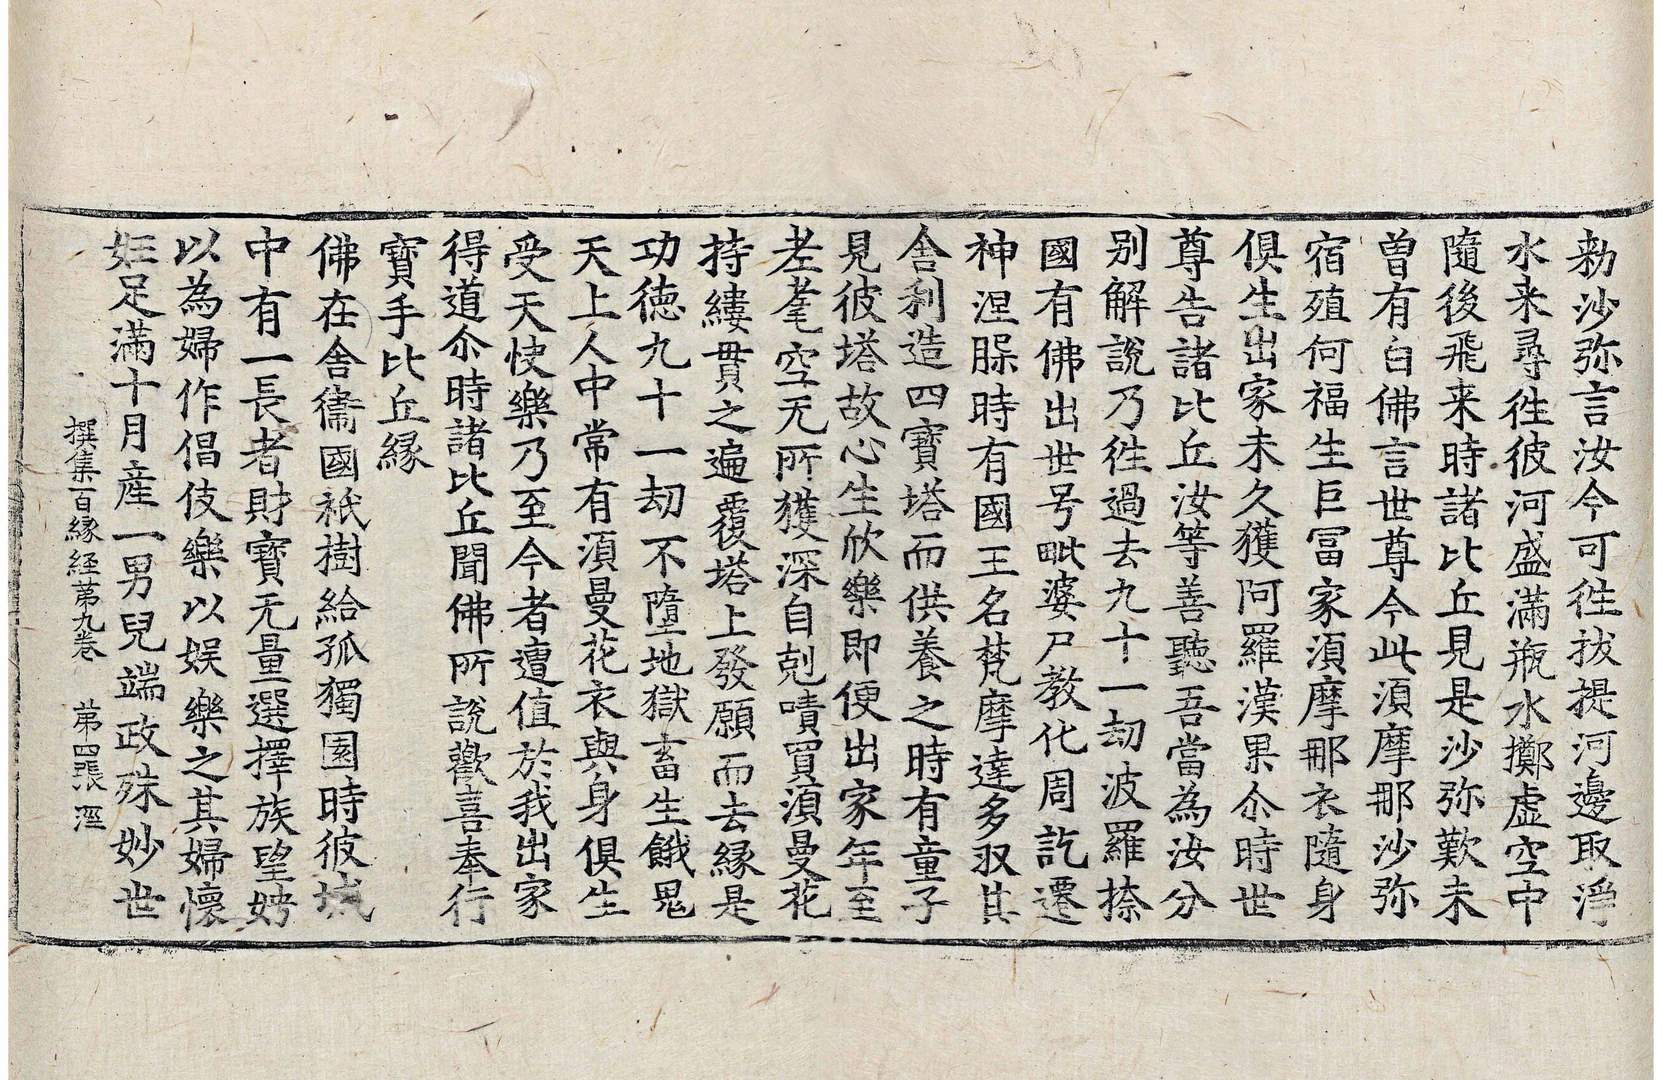 勑沙弥言汝今可徃拔提河邊取淨
水来尋徃彼河盛滿瓶水擲虛空中
隨後飛来時諸比丘見是沙弥歎未
曾有白佛言世尊今此湏摩那沙弥
宿殖何福生巨冨家湏摩那衣隨身
俱生出家未久獲阿羅漢果尒時世
尊告諸比丘汝等善聽吾當為汝分
别解說乃徃過去九十一劫波羅㮈
國有佛出世号毗婆尸教化周訖遷
神涅槃時有國王名梵摩達多収其
舍利造四寶塔而供養之時有童子
見彼塔故心生欣樂即便出家年至
老耄空无所獲深自剋嘖買湏曼花
持縷貫之遍覆塔上發願而去縁是
功德九十一劫不墮地獄畜生餓鬼
天上人中常有湏曼花衣與身俱生
受天快樂乃至今者遭值於我出家
得道尒時諸比丘聞佛所說歡喜奉行
寶手比丘縁
佛在舍衞國祇樹給孤獨園時彼城
中有一長者財寶无量選擇族望娉
以為婦作倡伎樂以娱樂之其婦懷
妊足滿十月産一男兒端政殊妙世
撰集百縁経第九卷　第四張　涇